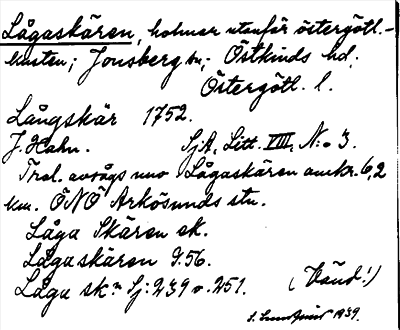 Lågaskären, holmar utanför östergötl.-
kusten; Jonsberg sn; Östkinds hd,
Östergötl. l.
Långskär 1752.
J. Hahn. SjA, Litt. VIII, N:o 3.
Trol. avsågs nuv Lågaskären omkr. 6,2
km. ÖNÖ Arkösunds stn.
Låga Skären sk.
Lågaskären G.56.
Låga sk.n Sj: 239 o. 251. (Vänd!)
1939.